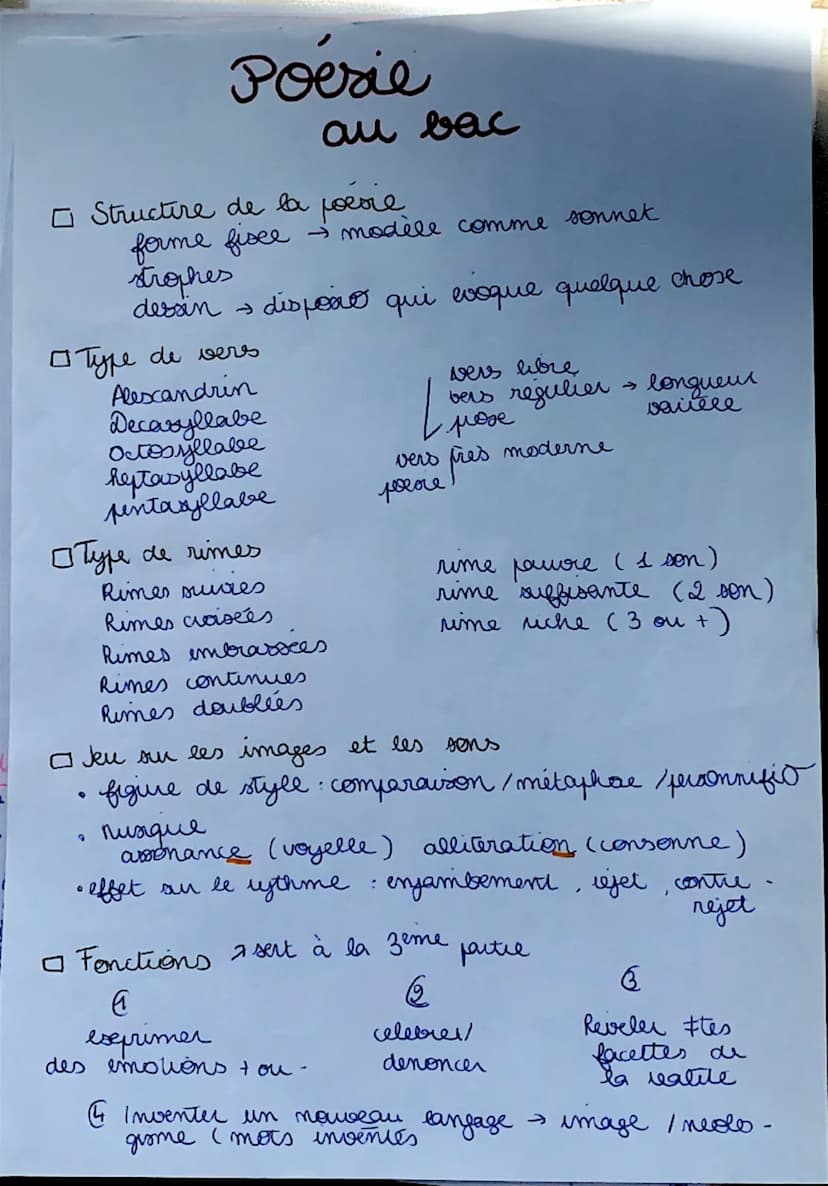 Poésie
au bac
□ Structure de la poésie
forme fixe → modèle comme sonnet
strophes
dessin → dispo° qui evoque quelque chose
□ Type de vers
Alexandrin
Decasyllabe
Octosyllabe
Heptasyllabe
pentasyllabe
vers libre
vers régulier → longueur
variée
prose
vers très moderne
poesie
□ Type de rimes
Rimes suivies
Rimes croisées
Rimes embrassées
Rimes continues
Rimes doublées
rime pauvre (1 son)
rime suffisante (2 son)
rime riche (3 ou +)
□ Jeu sur les images et les sons
• figure de style : comparaison / métaphore / personnifi°
• musique
assonance (voyelle) alliteration (consonne)
• effet sur le rythme : enjambement, rejet, contre -
rejet
□ Fonctions ↗ sert à la 3ème partie
1
exprimer
des emotions + ou -
2
celebrer/
denoncer
3
Reveler ≠tes
facettes de
la realité
4 Inventer un nouveau langage → image / neolo -
gisme ( mots inventés